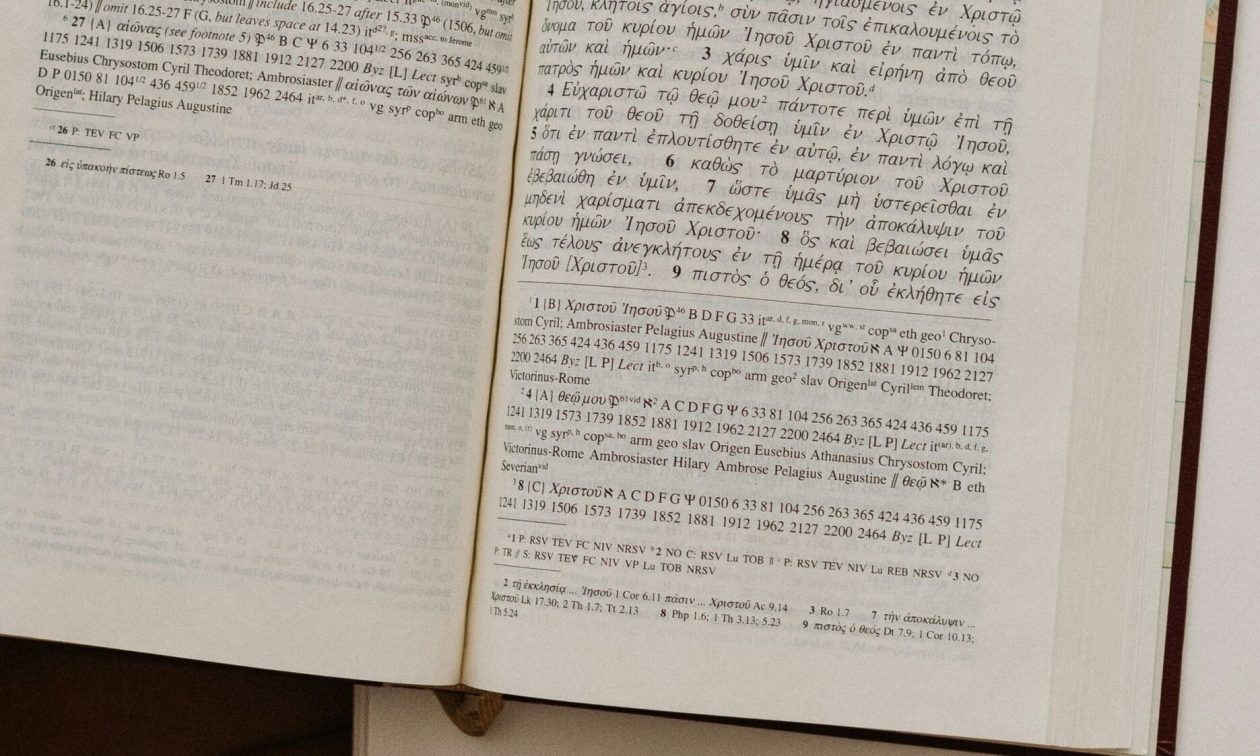 16.1-24) // omit 16.25-27 F (G, but leaves space at 14.23) it d2?, g; mss acc. to Jerome
include 16.25-27 after 15.33 𝔓46 (1506, but omit
6 27 {A} αἰῶνας (see footnote 5) 𝔓46 B C Ψ 6 33 104 1/2 256 263 365 424 459 1/2
1175 1241 1319 1506 1573 1739 1881 1912 2127 2200 Byz [L] Lect syr h cop sa slav
Eusebius Chrysostom Cyril Theodoret; Ambrosiaster // αἰῶνας τῶν αἰώνων 𝔓61 ℵ A
D P 0150 81 104 1/2 436 459 1/2 1852 1962 2464 it ar, b, d*, f, o vg syr p cop bo arm eth geo
Origen lat; Hilary Pelagius Augustine
26 P: TEV FC VP
26 εἰς ὑπακοὴν πίστεως Ro 1.5 27 1 Tm 1.17; Jd 25
Ἰησοῦ, κλητοῖς ἁγίοις,b σὺν πᾶσιν τοῖς ἐπικαλουμένοις τὸ
ὄνομα τοῦ κυρίου ἡμῶν Ἰησοῦ Χριστοῦ ἐν παντὶ τόπῳ,
αὐτῶν καὶ ἡμῶν·c 3 χάρις ὑμῖν καὶ εἰρήνη ἀπὸ θεοῦ
πατρὸς ἡμῶν καὶ κυρίου Ἰησοῦ Χριστοῦ.d
4 Εὐχαριστῶ τῷ θεῷ μου2 πάντοτε περὶ ὑμῶν ἐπὶ τῇ
χάριτι τοῦ θεοῦ τῇ δοθείσῃ ὑμῖν ἐν Χριστῷ Ἰησοῦ,
5 ὅτι ἐν παντὶ ἐπλουτίσθητε ἐν αὐτῷ, ἐν παντὶ λόγῳ καὶ
πάσῃ γνώσει, 6 καθὼς τὸ μαρτύριον τοῦ Χριστοῦ
ἐβεβαιώθη ἐν ὑμῖν, 7 ὥστε ὑμᾶς μὴ ὑστερεῖσθαι ἐν
μηδενὶ χαρίσματι ἀπεκδεχομένους τὴν ἀποκάλυψιν τοῦ
κυρίου ἡμῶν Ἰησοῦ Χριστοῦ· 8 ὃς καὶ βεβαιώσει ὑμᾶς
ἕως τέλους ἀνεγκλήτους ἐν τῇ ἡμέρᾳ τοῦ κυρίου ἡμῶν
Ἰησοῦ [Χριστοῦ]3. 9 πιστὸς ὁ θεός, δι’ οὗ ἐκλήθητε εἰς
1 1 {B} Χριστοῦ Ἰησοῦ 𝔓46 B D F G 33 it ar, d, f, g, mon, r vg ww, st cop sa eth geo1 Chryso-
stom Cyril; Ambrosiaster Pelagius Augustine // Ἰησοῦ Χριστοῦ ℵ A Ψ 0150 6 81 104
256 263 365 424 436 459 1175 1241 1319 1506 1573 1739 1852 1881 1912 1962 2127
2200 2464 Byz [L P] Lect it b, o syr p, h cop bo arm geo2 slav Origen lat Cyril lem Theodoret;
Victorinus-Rome
2 4 {A} θεῷ μου 𝔓61vid ℵ2 A C D F G Ψ 6 33 81 104 256 263 365 424 436 459 1175
1241 1319 1573 1739 1852 1881 1912 1962 2127 2200 2464 Byz [L P] Lect it (ar), b, d, f, g,
mon, o, (r) vg syr p, h cop sa, bo arm geo slav Origen Eusebius Athanasius Chrysostom Cyril;
Victorinus-Rome Ambrosiaster Hilary Ambrose Pelagius Augustine // θεῷ ℵ* B eth
Severian vid
3 8 {C} Χριστοῦ ℵ A C D F G Ψ 0150 6 33 81 104 256 263 365 424 436 459 1175
1241 1319 1506 1573 1739 1852 1881 1912 1962 2127 2200 2464 Byz [L P] Lect
a 1 P: RSV TEV FC NIV NRSV b 2 NO C: RSV Lu TOB // c P: RSV TEV NIV Lu REB NRSV d 3 NO
P: TR // S: RSV TEV FC NIV VP Lu TOB NRSV
2 τῇ ἐκκλησίᾳ ... Ἰησοῦ 1 Cor 6.11 πᾶσιν ... Χριστοῦ Ac 9.14 3 Ro 1.7 7 τὴν ἀποκάλυψιν ...
Χριστοῦ Lk 17.30; 2 Th 1.7; Tt 2.13 8 Php 1.6; 1 Th 3.13; 5.23 9 πιστὸς ὁ θεός Dt 7.9; 1 Cor 10.13;
1 Th 5.24